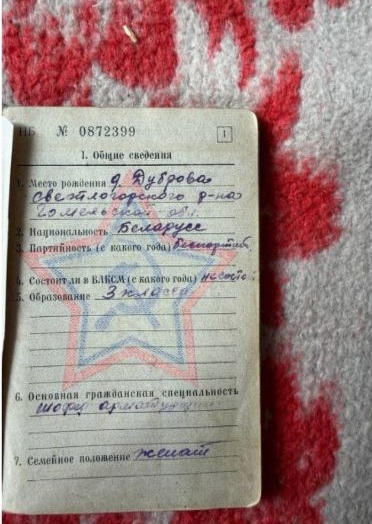 НБ № 0872399
1
I. Общие сведения
1. Место рождения д. Дуброва
Светлогорского р-на
Гомельской обл.
2. Национальность Беларусс
3. Партийность (с какого года) беспартийн
4. Состоял ли в ВЛКСМ (с какого года) не сост
5. Образование 3 класса
6. Основная гражданская специальность
шофер
7. Семейное положение женат